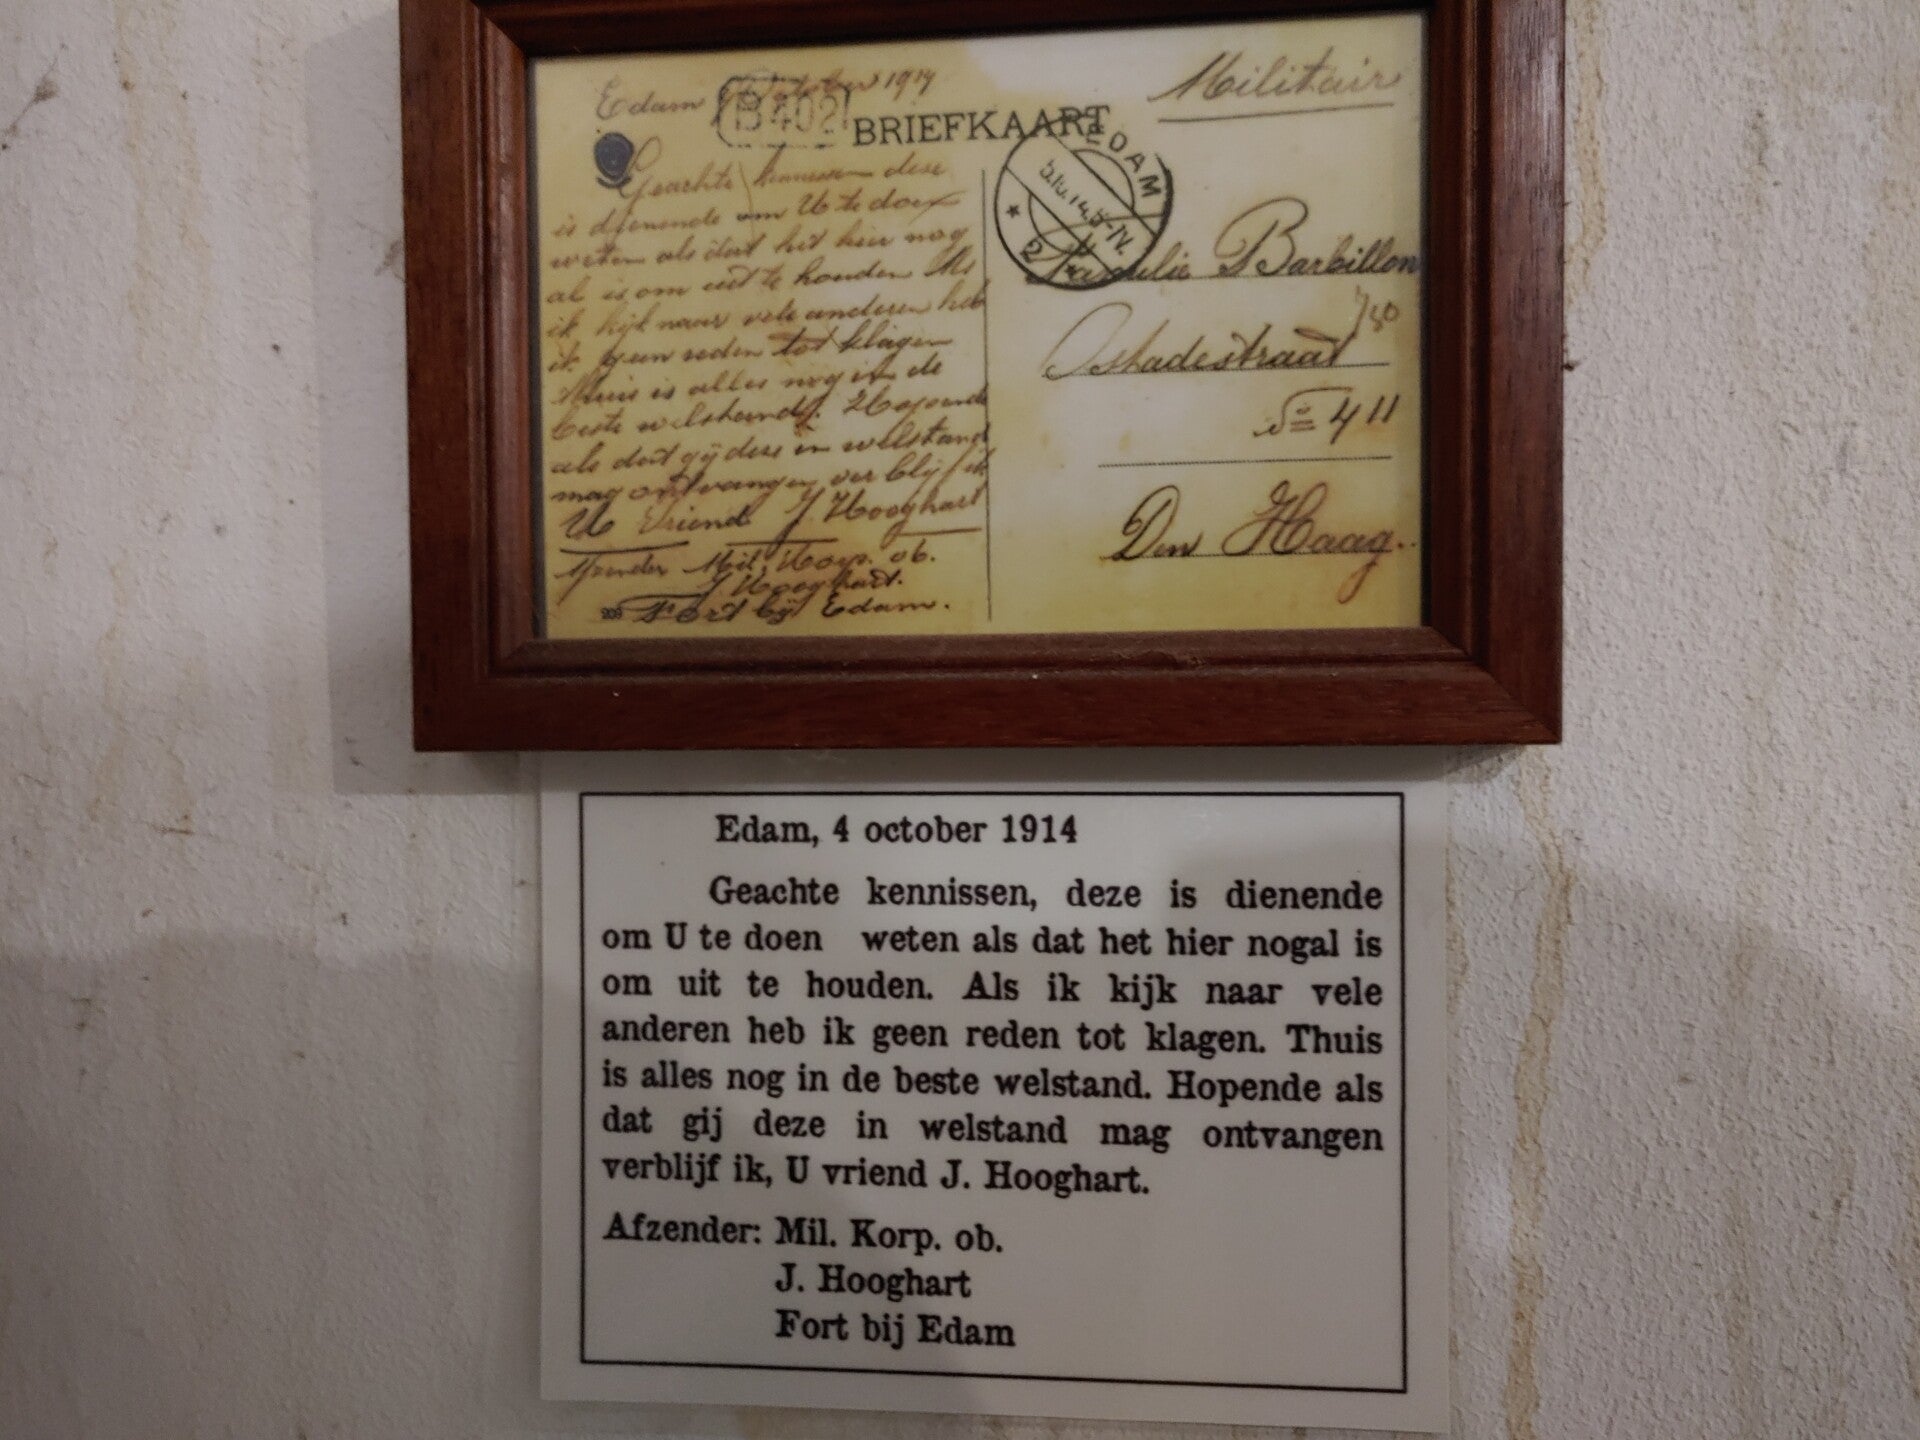 Edam 4 October 1914
B402
BRIEFKAART
Militair
EDAM
5.10.14.
Geachte kennissen dese
is dienende om U te doen
weten als dat het hier nog
al is om uit te houden Als
ik kijk naar vele anderen heb
ik geen reden tot klagen
thuis is alles nog in de
beste welstand. Hopende
als dat gij dese in welstand
mag ontvangen ver blijf ik
U Vriend J. Hooghart
Afzender Mil. Korp. ob.
J. Hooghart.
Fort bij Edam.
Familie Barbillon
Ostadestraat
411
Den Haag.
Edam, 4 october 1914
Geachte kennissen, deze is dienende
om U te doen weten als dat het hier nogal is
om uit te houden. Als ik kijk naar vele
anderen heb ik geen reden tot klagen. Thuis
is alles nog in de beste welstand. Hopende als
dat gij deze in welstand mag ontvangen
verblijf ik, U vriend J. Hooghart.
Afzender: Mil. Korp. ob.
J. Hooghart
Fort bij Edam